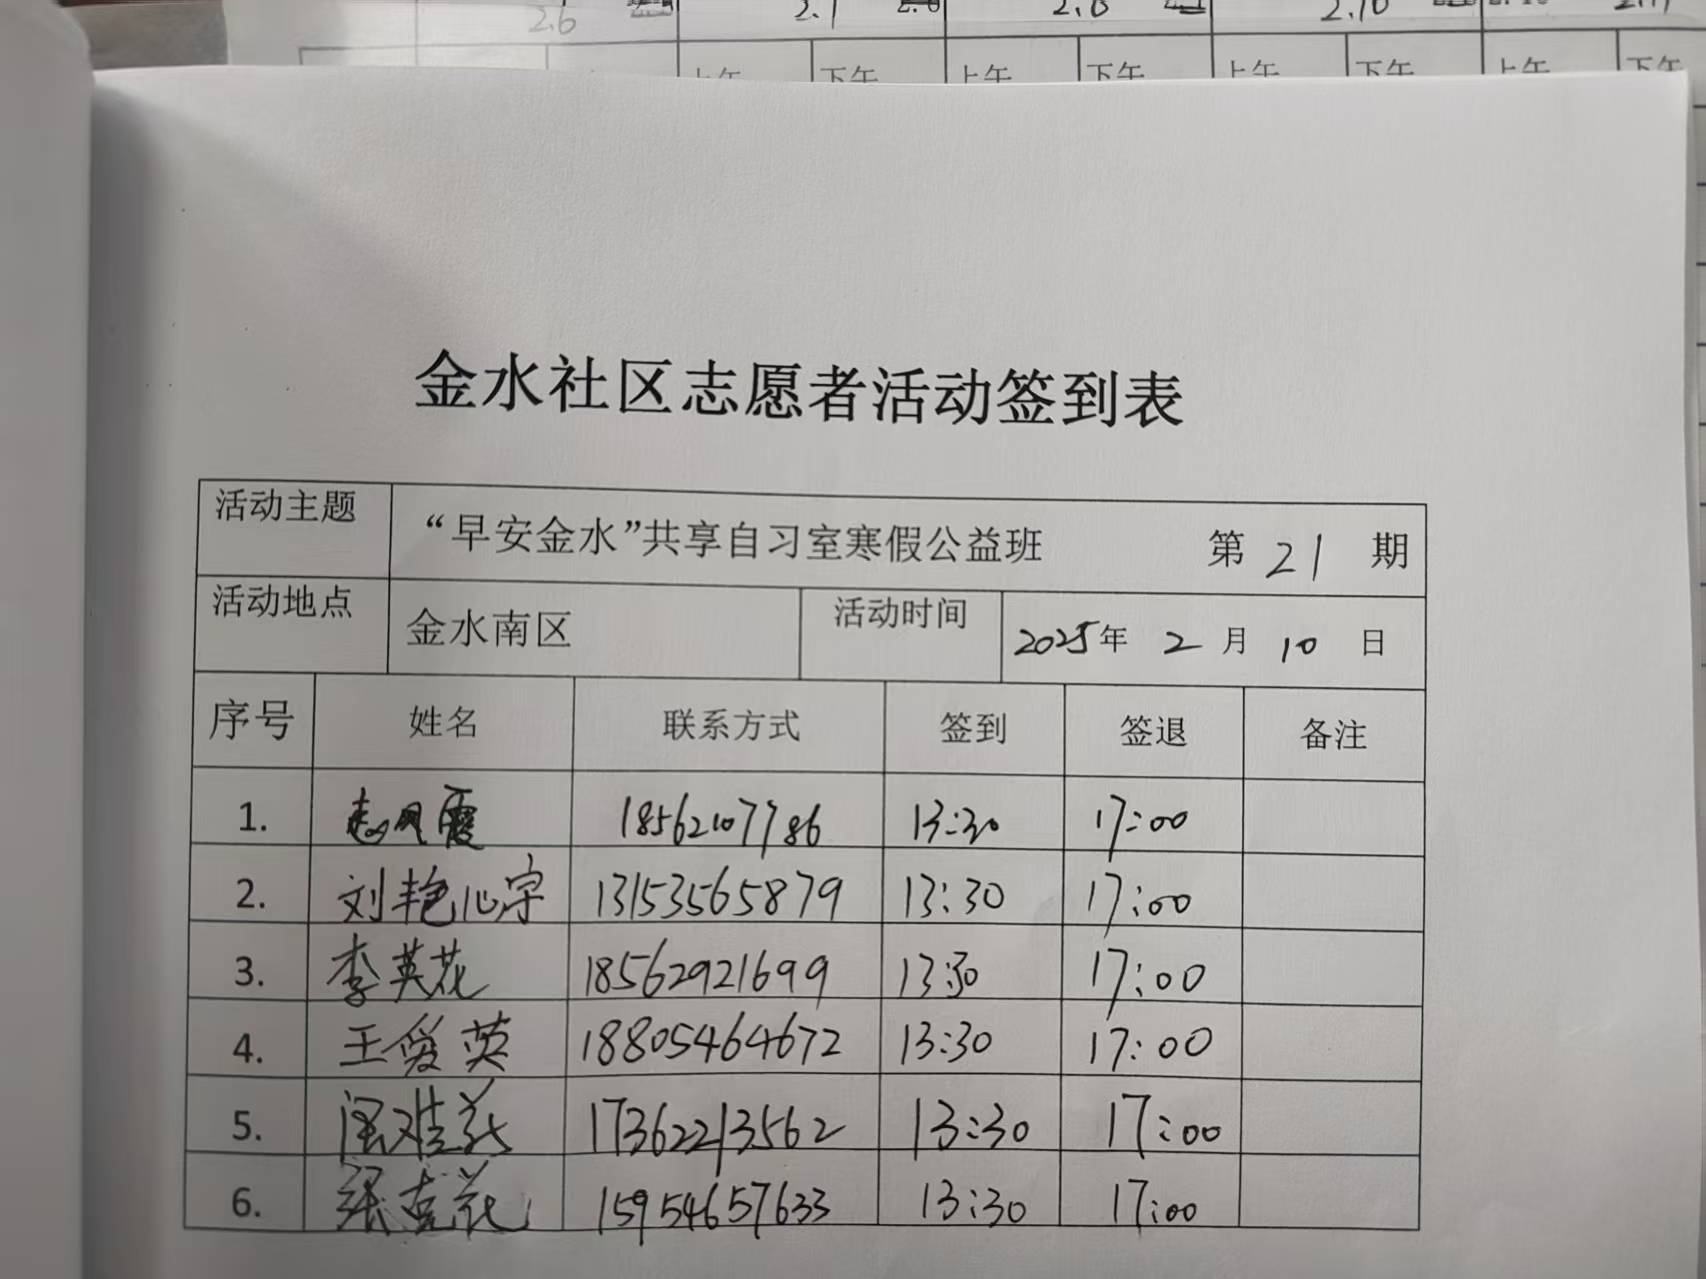 2.6 2.7 2.8 2.10
上午 下午 上午 下午 上午 下午 上午 下午
金水社区志愿者活动签到表
活动主题 “早安金水”共享自习室寒假公益班 第 21 期
活动地点 金水南区 活动时间 2025年 2 月 10 日
序号 姓名 联系方式 签到 签退 备注
1. 赵凤霞 18562107786 13:30 17:00
2. 刘艳心宇 13153565879 13:30 17:00
3. 李英花 18562921699 13:30 17:00
4. 王爱英 18805464672 13:30 17:00
5. 17362213562 13:30 17:00
6. 张克花 15954657633 13:30 17:00